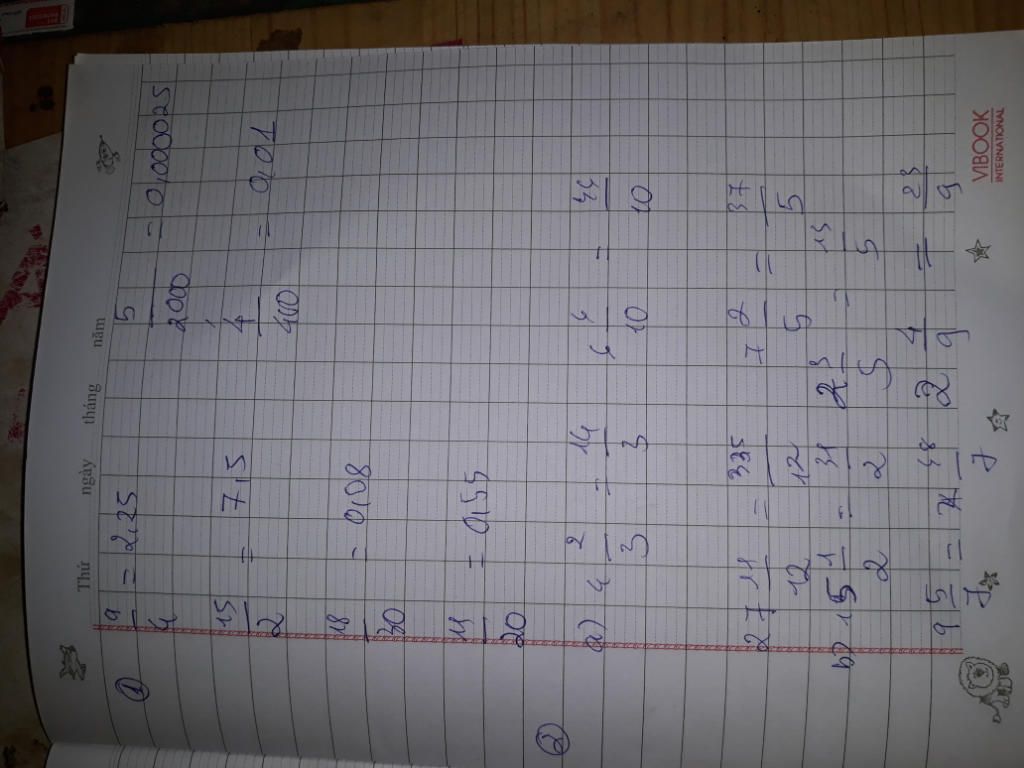 Thứ ngày tháng năm
① 9/4 = 2,25 5/2000 = 0,0000025
15/2 = 7,5 4/400 = 0,01
18/30 = 0,08
11/20 = 0,55
② a) 4 2/3 = 14/3 4 4/10 = 44/10
27 11/12 = 335/12 7 2/5 = 37/5
b) 15 1/2 = 31/2 2 3/5 = 13/5
9 5/9 = 2 4/9 = 23/9
VIBOOK
INTERNATIONAL